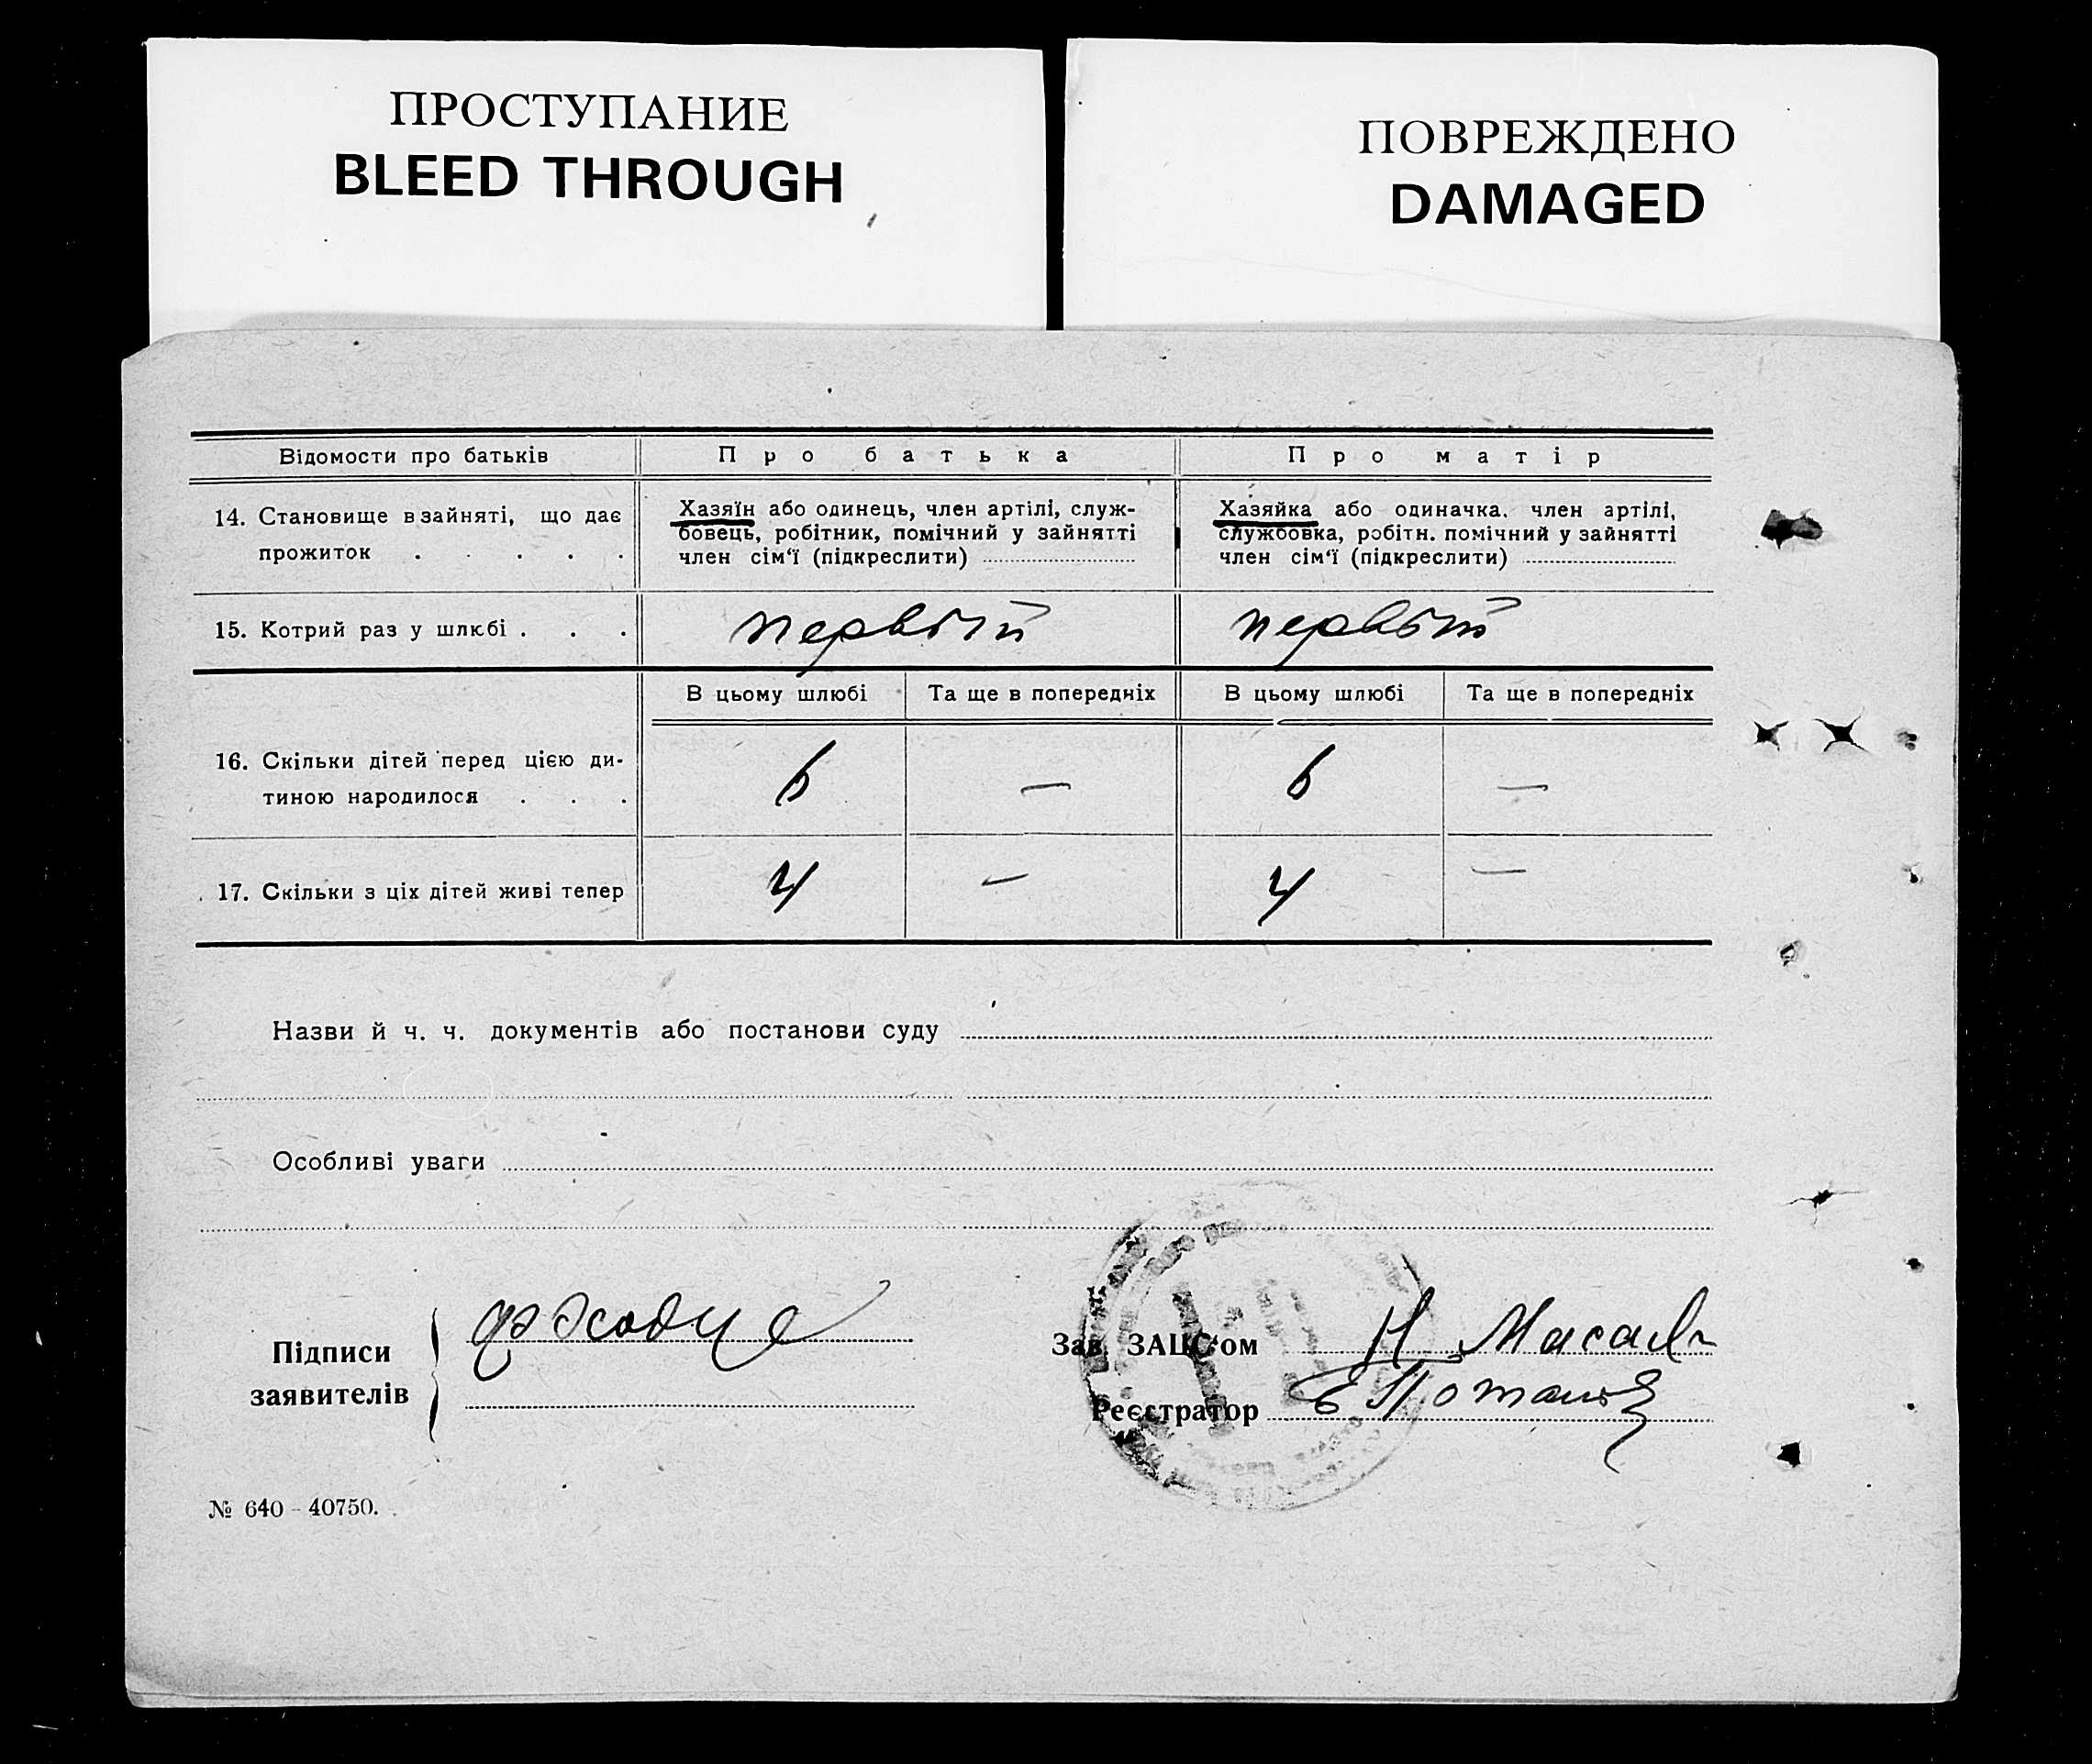 ПРОСТУПАНИЕ
BLEED THROUGH
ПОВРЕЖДЕНО
DAMAGED
Відомости про батьків
Про батька
Про матір
14. Становище в зайняті, що дає
прожиток . . . . .
Хазяїн або одинець, член артілі, служ-
бовець, робітник, помічний у зайнятті
член сім‘ї (підкреслити)
Хазяйка або одиначка. член артілі,
службовка, робітн. помічний у зайнятті
член сім‘ї (підкреслити)
15. Котрий раз у шлюбі . . .
первый
первый
В цьому шлюбі
Та ще в попередніх
В цьому шлюбі
Та ще в попередніх
16. Скільки дітей перед цією ди-
тиною народилося . . .
6
—
6
—
17. Скільки з ціх дітей живі тепер
4
—
4
—
Назви й ч. ч. документів або постанови суду
Особливі уваги
Підписи
заявителів
Зав. ЗАЦС‘ом
Реєстратор
№ 640 - 40750.